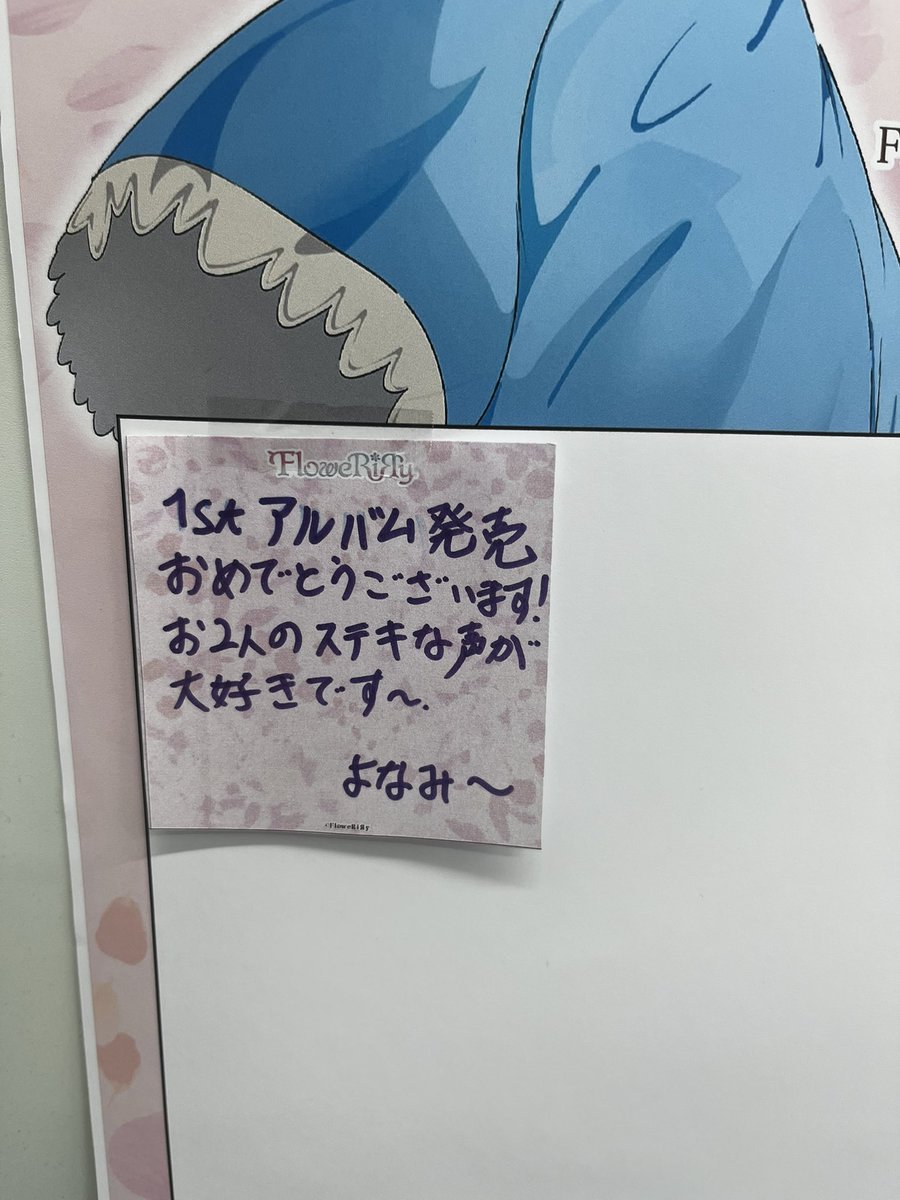 F
FloweRiЯy
1st アルバム発売
おめでとうございます!
お2人のステキな声が
大好きです〜.
よなみ〜
©FloweRiЯy